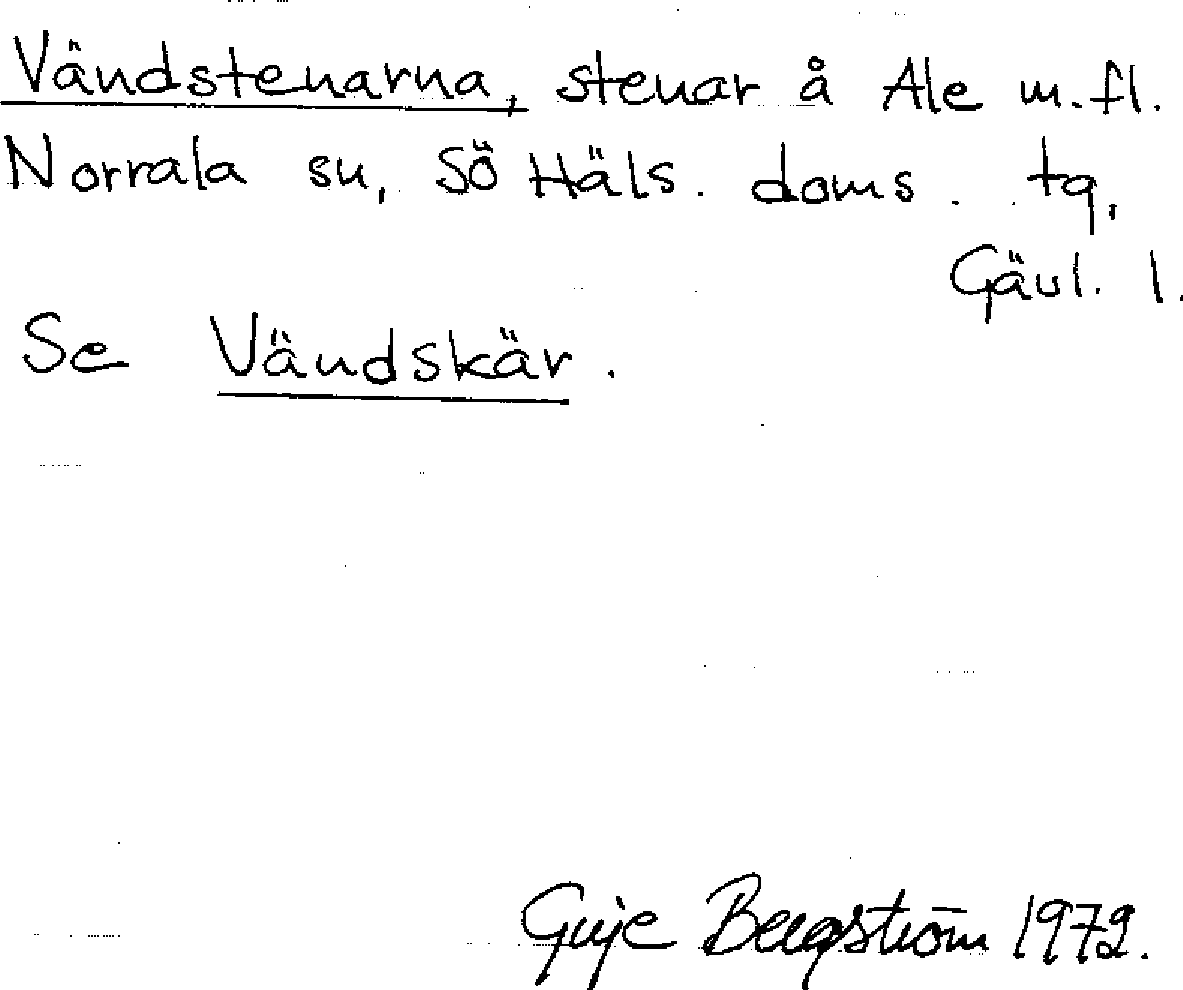 Vändstenarna, stenar å Ale m.fl.
Norrala sn, Sö Häls. doms. tg,
Gävl. l.
Se Vändskär.
Guje Bergström 1972.